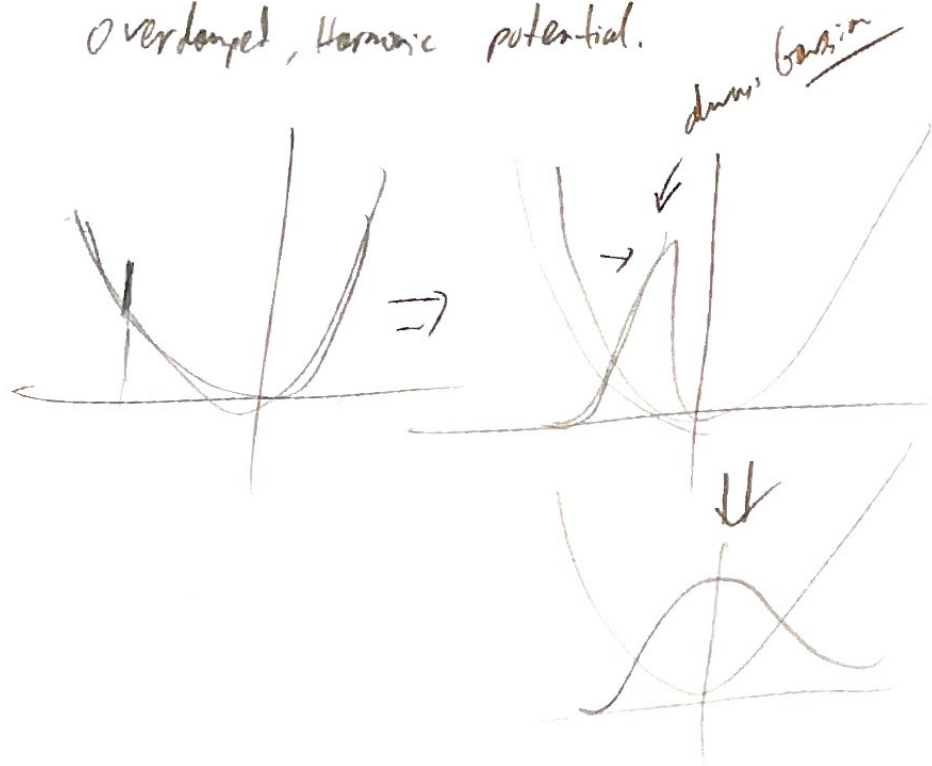 Overdamped, Harmonic potential.
always Gaussian